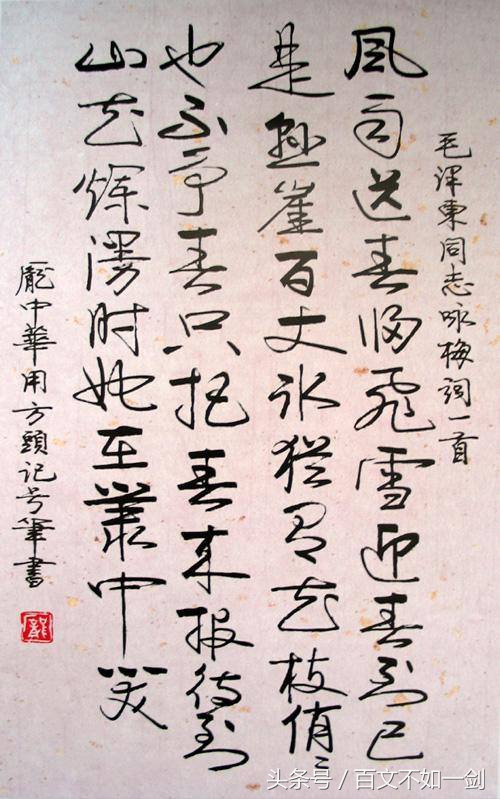 毛泽東同志咏梅词一首
风雨送春归飛雪迎春到已
是懸崖百丈冰犹有花枝俏〻
也不争春只把春来报待到
山花爛漫时她在叢中笑
龐中華用方頭记号筆書
龐
头条号 / 百文不如一剑